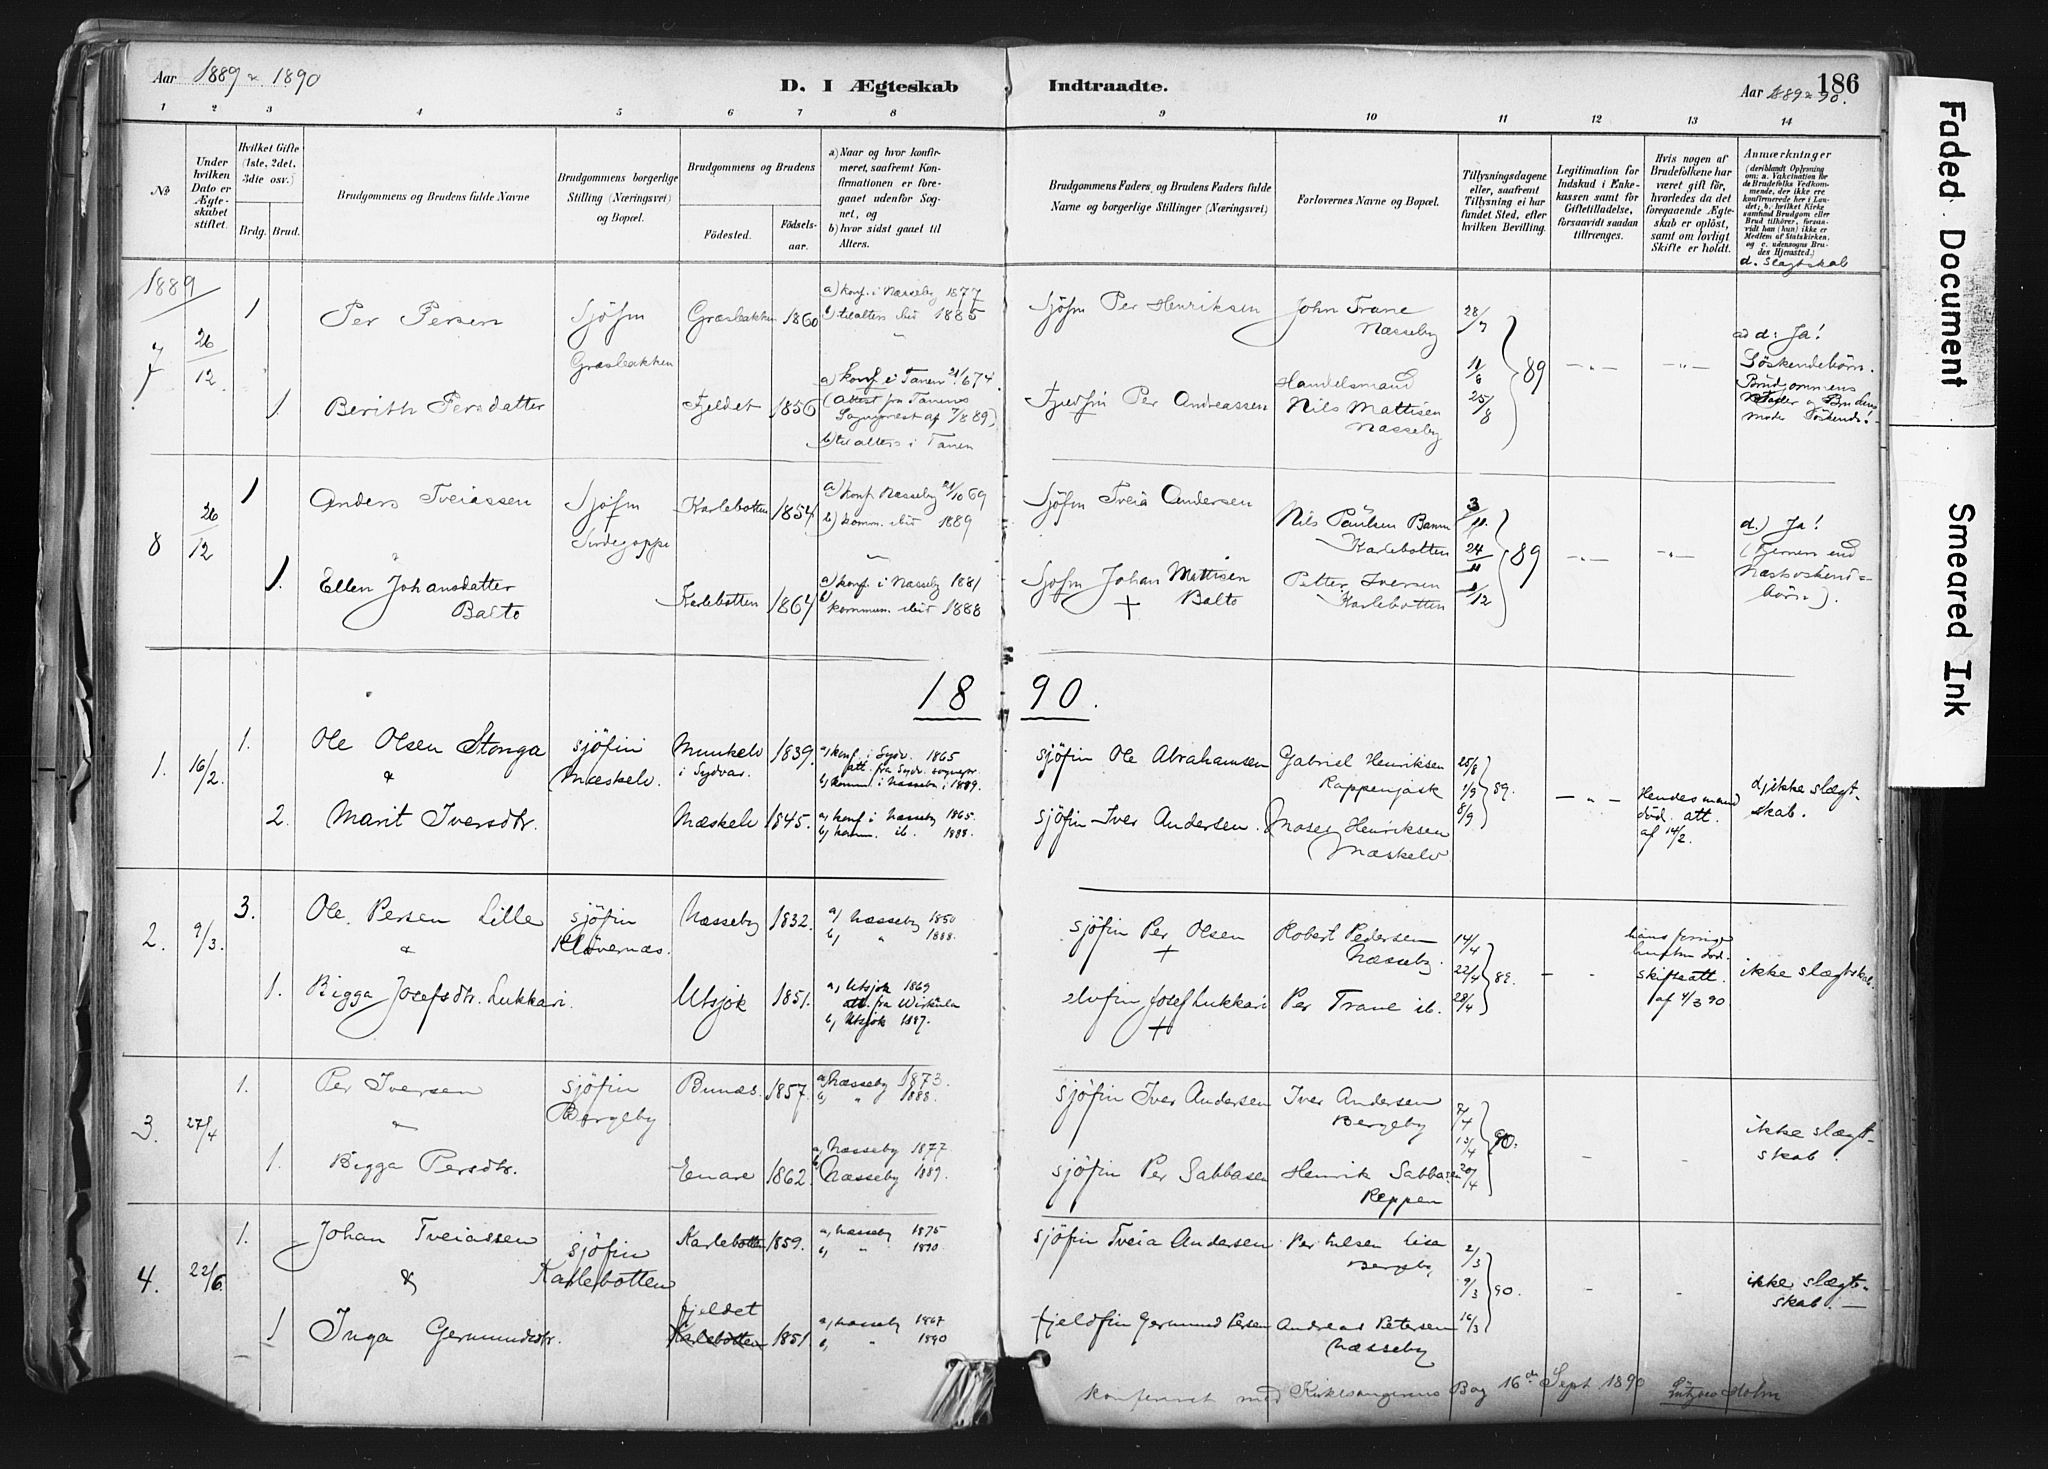 Aar 1889 & 1890
D. I Ægteskab Indtraadte.
Aar 1889 & 90.
186
1 2 3 4 5 6 7 8 9 10 11 12 13 14
No
Under hvilken Dato er Ægteskabet stiftet.
Hvilket Gifte (1ste, 2det, 3die osv.)
Brdg. Brud.
Brudgommens og Brudens fulde Navne
Brudgommens borgerlige Stilling (Næringsvei) og Bopæl.
Brudgommens og Brudens
Födested.
Födselsaar.
a) Naar og hvor konfirmeret, saafremt Konfirmationen er foregaaet udenfor Sognet, og
b) hvor sidst gaaet til Alters.
Brudgommens Faders og Brudens Faders fulde Navne og borgerlige Stillinger (Næringsvei)
Forlovernes Navne og Bopæl.
Tillysningsdagene eller, saafremt Tillysning ei har fundet Sted, efter hvilken Bevilling.
Legitimation for Indskud i Enkekassen samt for Giftetilladelse, forsaavidt saadan tiltrænges.
Hvis nogen af Brudefolkene har været gift för, hvorledes da det foregaaende Ægteskab er oplöst, samt om lovligt Skifte er holdt.
Anmærkninger
(deriblandt Oplysning om: a. Vakcination for de Brudefolks Vedkommende, der ikke ere konfirmerede her i Landet; b. hvilket Kirkesamfund Brudgom eller Brud tilhörer, forsaavidt han (hun) ikke er Medlem af Statskirken, og c. udensogns Brudes Hjemsted.)
d. Slægtskab
1889
7 26/12 1 Per Persen Sjöfin Græsbakken Græsbakken 1860
a) konf. i Næsseby 1877
b) tilalters ibid 1885
Sjöfin Per Henriksen
John Trane Næsseby
28/7 11/8 25/8 89
ad d: Ja!
Söskendebörn.
Brudgommens Fader og Brudens moder Söskende!
1. Berith Persdatter Fjeldet 1856
a) konf i Tanen 21/6 74.
(Attest fra Tanens Sogneprest af 7/8 89)
b) til alters i Tanen
Fjeldfin Per Andreassen
Handelsmand Nils Mathisen Næsseby
8 26/12 1 Anders Tveiassen Sjöfin Karlebotten 1854
a) konf. Næsseby 21/10 69
b) komm. ibid 1889
Sjöfin Tveia Andersen
Nils Paulsen Karlebotten
3/11 24/11 1/12 89
d.) Ja!
(Fjernere end Næstsöskendebörn).
1. Ellen Johansdatter Balto Karlebotten 1864
a) konf. i Næsseby 1881
b) kommun. ibid 1888
Sjöfin Johan Mathisen Balto +
Petter Iversen Karlebotten
1890.
1. 16/2. 1. Ole Olsen Stonga sjöfin Mæskelv. Munkelv i Sydvar. 1839.
a, konf. i Sydv. 1865
att. fra Sydv. sognepr.
b, komm. i Næsseby i 1889.
sjöfin Ole Abrahamsen
Gabriel Henriksen Kappenjask
25/8 1/9 8/9 89.
d, ikke slægtskab.
&
2. Marit Iversdtr. Mæskelv 1845.
a, konf. i Næsseby 1865.
b, komm. ib. 1888.
sjöfin Iver Andersen.
Moses Henriksen Mæskelv
Hendes mand död. att. af 14/2.
2. 9/3. 3. Ole Persen Lille sjöfin Klövernæs. Næsseby 1832.
a, Næsseby 1850
b, " 1888.
sjöfin Per Olsen +
Robert Pedersen Næsseby.
14/4 22/4 28/4 89.
hans forrige hustru död. skifteatt. af 4/3 90
ikke slægtskab.
&
1. Bigga Josefsdtr. Lukkari. Utsjok 1851.
a, Utsjok 1869
att. fra Wirkula
b, Utsjok 1887.
elvfin Josef Lukkari +
Per Trane ib.
3. 27/4 1. Per Iversen sjöfin Bergeby Bunæs. 1857.
a, Næsseby 1873.
b, " 1888.
sjöfin Iver Andersen
Iver Andersen Bergeby
7/4 13/4 20/4 90.
ikke slægtskab.
1. Bigga Persdtr. Enare 1862.
a, Næsseby 1877
b, Næsseby 1889.
sjöfin Per Sabbasen
Henrik Sabbasen Reppen
4. 22/6. 1. Johan Tveiassen sjöfin Karlebotten Karlebotten 1859.
a, Næsseby 1875
b, " 1890.
sjöfin Tveia Andersen
Per Nilsen Lisa Bergeby
2/3 9/3 16/3 90.
ikke slægtskab.
&
1 Inga Germundsdtr. fjeldet Karlebotten 1851.
a, Næsseby 1867
b, " 1890
fjeldfin Germund Persen
Andreas Petersen Næsseby
Konfereret med Kirkesangerens Bog 16de Sept 1890 Lützow Holm
Faded Document
Smeared Ink